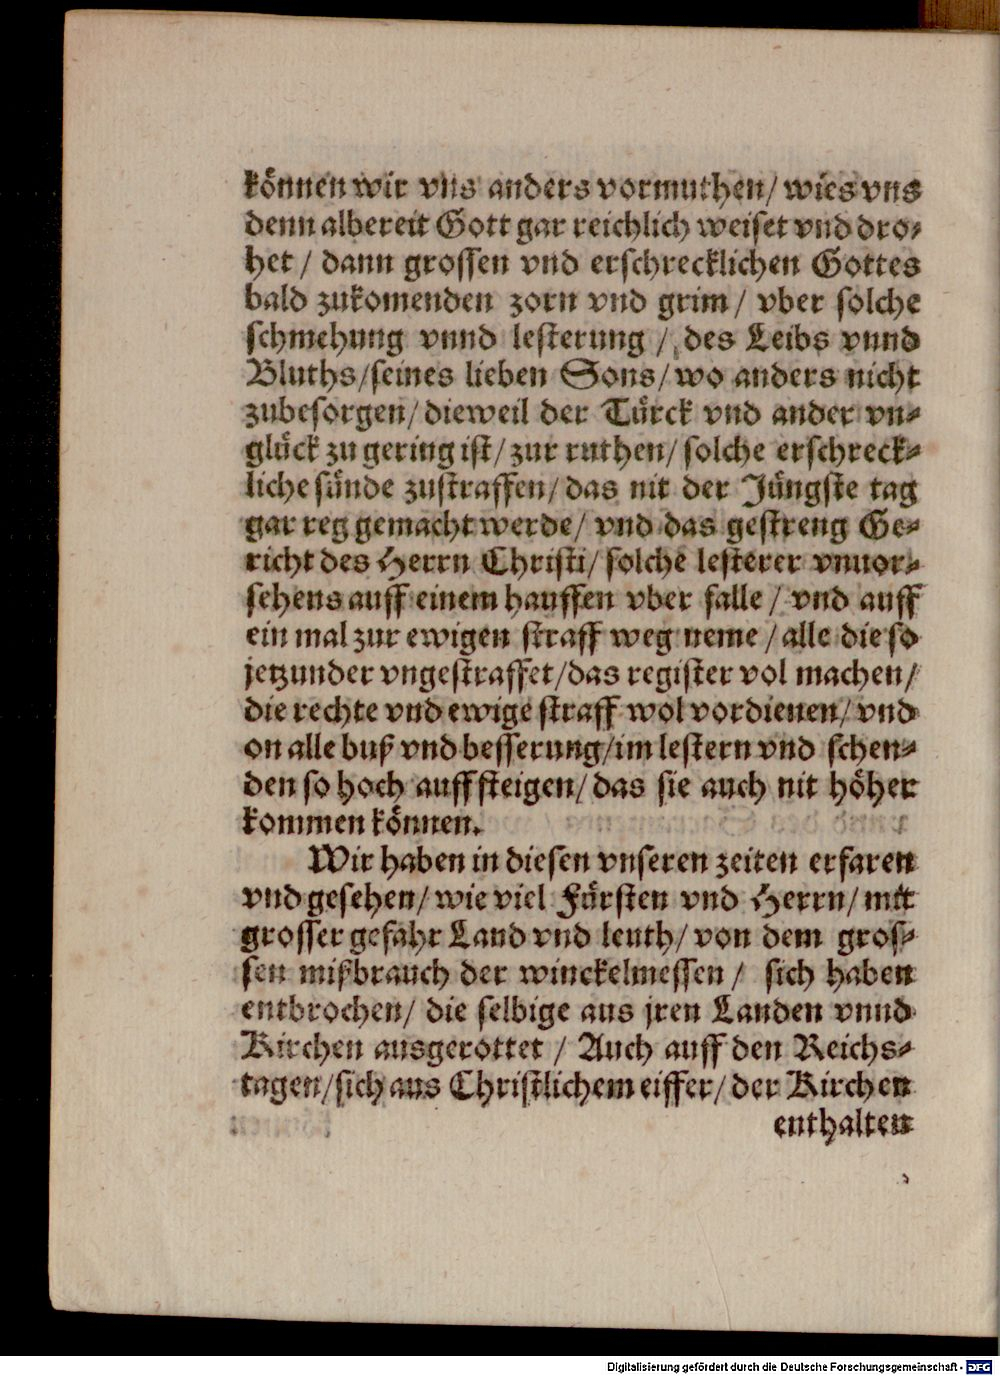 können wir vns anders vormuthen/ wies vns
denn albereit Gott gar reichlich weiset vnd dro-
het / dann grossen vnd erschrecklichen Gottes
bald zukomenden zorn vnd grim/ vber solche
schmehung vnnd lesterung / des Leibs vnnd
Bluths/seines lieben Sons/ wo anders nicht
zubesorgen/ dieweil der Türck vnd ander vn-
glück zu gering ist/ zur ruthen/ solche erschreck-
liche sünde zustraffen/ das nit der Jüngste tag
gar reg gemacht werde/ vnd das gestreng Ge-
richt des Herrn Christi/ solche lesterer vnuor-
sehens auff einem hauffen vber falle / vnd auff
ein mal zur ewigen straff weg neme / alle die so
jetzunder vngestraffet/das register vol machen/
die rechte vnd ewige straff wol vordienen/ vnd
on alle buß vnd besserung/im lestern vnd schen-
den so hoch auffsteigen/ das sie auch nit höher
kommen können.
Wir haben in diesen vnseren zeiten erfaren
vnd gesehen/ wie viel Fürsten vnd Herrn/ mit
grosser gefahr Land vnd leuth/ von dem gros-
sen mißbrauch der winckelmessen / sich haben
entbrochen/ die selbige aus jren Landen vnnd
Kirchen ausgerottet / Auch auff den Reichs-
tagen/sich aus Christlichem eiffer/ der Kirchen
enthalten
Digitalisierung gefördert durch die Deutsche Forschungsgemeinschaft - DFG